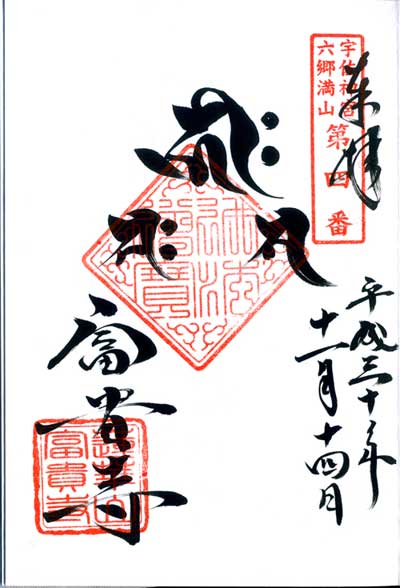 宇佐神宮
六郷満山 第四番
奉拝
平成三十年
十一月十四日
佛法
僧寳
富貴寺
蓮華山
富貴寺